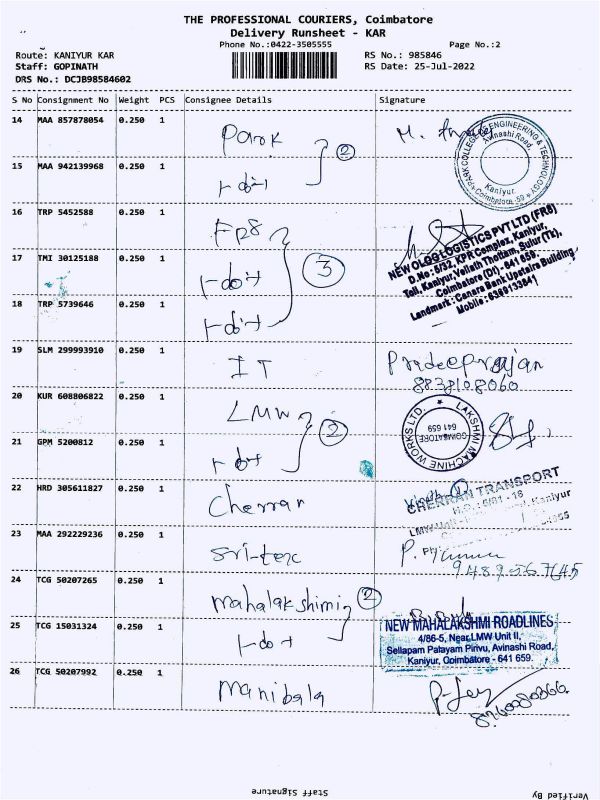 THE PROFESSIONAL COURIERS, Coimbatore
Delivery Runsheet - KAR
Phone No.:0422-3505555 Page No.:2
Route: KANIYUR KAR RS No.: 985846
Staff: GOPINATH RS Date: 25-Jul-2022
DRS No.: DCJB98584602
S No Consignment No Weight PCS Consignee Details Signature
14 MAA 857878054 0.250 1 Park
PARK COLLEGE OF ENGINEERING & TECHNOLOGY
Avinashi Road,
Kaniyur.
Coimbatore - 59
2
15 MAA 942139968 0.250 1 -do-
16 TRP 5452588 0.250 1 FP8
17 TMI 30125188 0.250 1 -do-
3
NEW OLOG LOGISTICS PVT LTD (FR8)
D.No: 5/32, KPR Complex, Kaniyur,
Toll, Kaniyur, Vellath Thottam, Sulur (Tk),
Coimbatore (Dt) - 641 659.
Landmark: Canara Bank Upstairs Building,
18 TRP 5739646 0.250 1 -do-
19 SLM 299993910 0.250 1 IT Pradeeprajan
8838108060
20 KUR 608806822 0.250 1 LMW
LAKSHMI MACHINE WORKS LTD.
COIMBATORE
641 659
2
21 GPM 5200812 0.250 1 -do-
22 HRD 305611827 0.250 1 Cherran
CHERRAN TRANSPORT
Kaniyur
23 MAA 292229236 0.250 1 Sri-tec
24 TCG 50207265 0.250 1 Mahalakshimi
2
25 TCG 15031324 0.250 1 -do-
NEW MAHALAKSHMI ROADLINES
4/86-5, Near LMW Unit II,
Sellapam Palayam Pirivu, Avinashi Road,
Kaniyur, Coimbatore - 641 659.
26 TCG 50207992 0.250 1 Manibala
Staff Signature Verified By